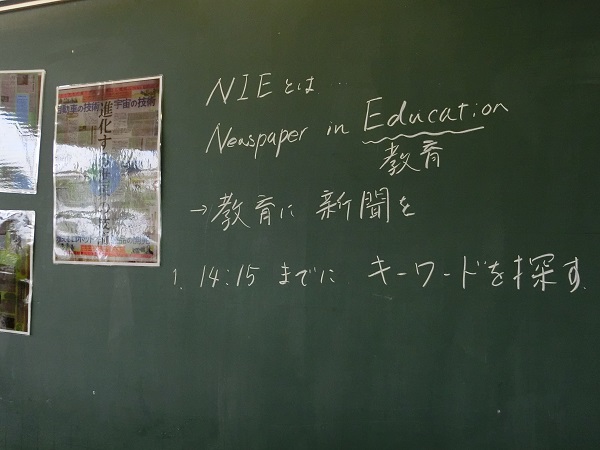 NIEとは…
Newspaper in Education
教育
→教育に 新聞を
1. 14:15 までに キーワードを探す.
宇宙の技術
進化する